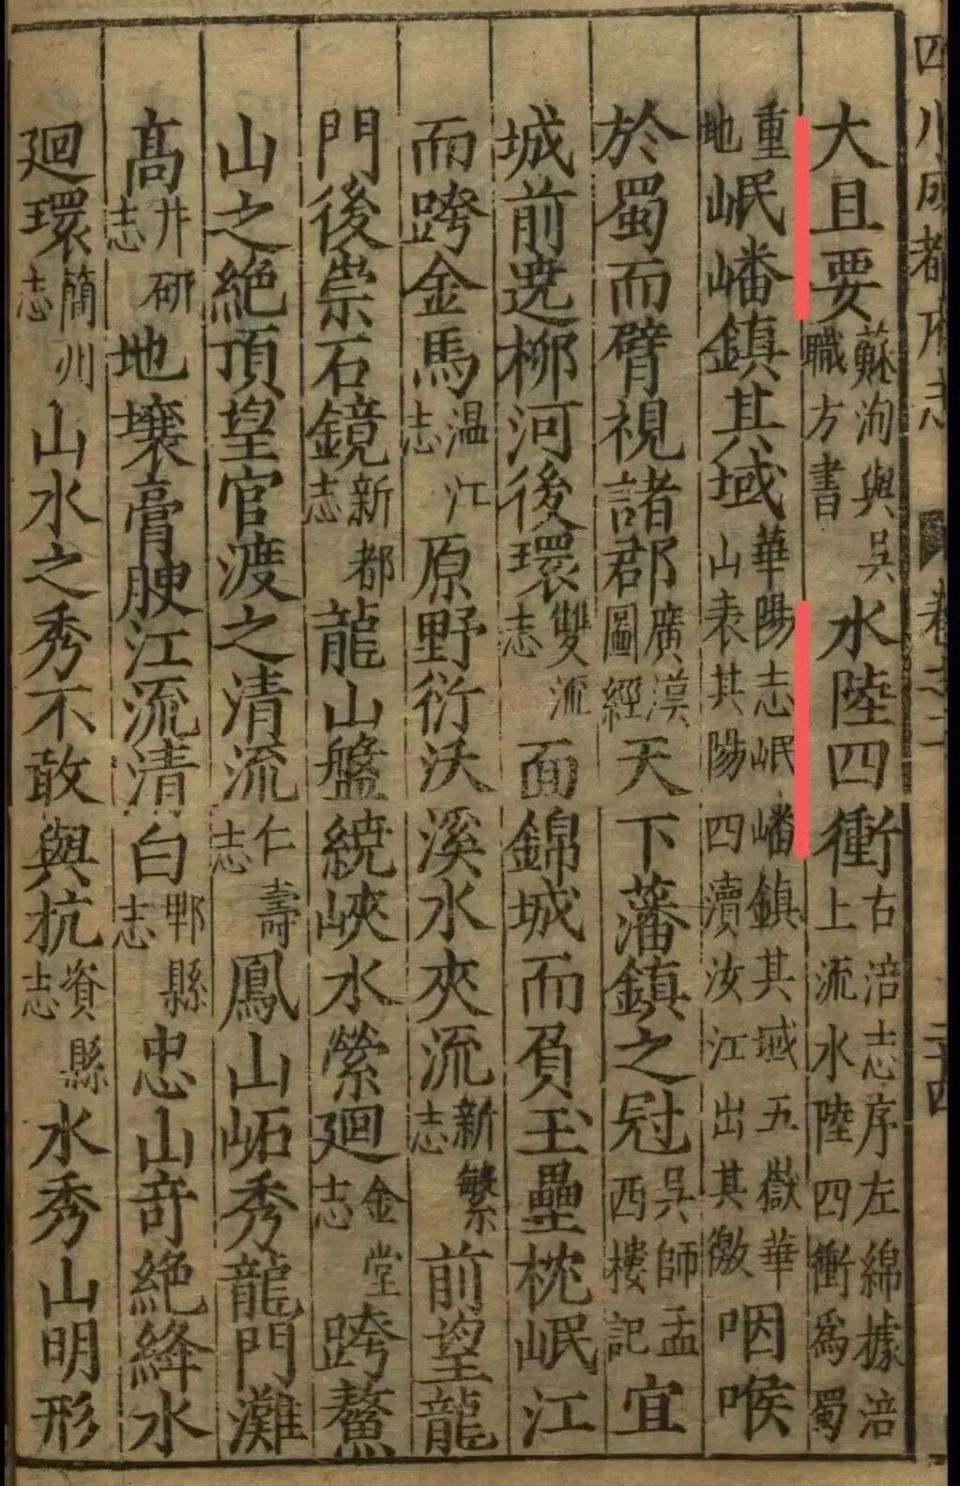 四川成都府志 卷之
大且要蘇洵與吳職方書水陸四衝右涪志序左綿據涪上流水陸四衝爲蜀
重地岷嶓鎮其域華陽志岷嶓鎮其域五嶽華山表其陽四瀆汶江出其徼咽喉
於蜀而臂視諸郡廣漢圖經天下藩鎮之冠吳師孟西樓記宜
城前遶柳河後環雙流志面錦城而負玉壘枕岷江
而跨金馬温江志原野衍沃溪水夾流新繁志前望龍
門後崇石鏡新都志龍山盤繞峽水縈廻金堂志跨鰲
山之絶頂皇官渡之清流仁壽志鳳山秀龍門灘
高井研志地壤膏腴江流清白郫縣志忠山奇絶絳水
廻環簡州志山水之秀不敢與杭資縣志水秀山明形